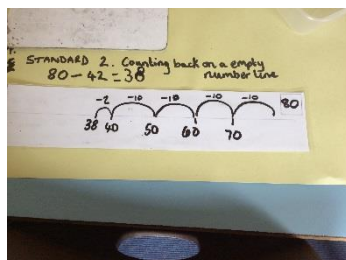 STANDARD 2. Counting back on a empty
number line
80 - 42 = 38
-2 -10 -10 -10 -10 80
38 40 50 60 70